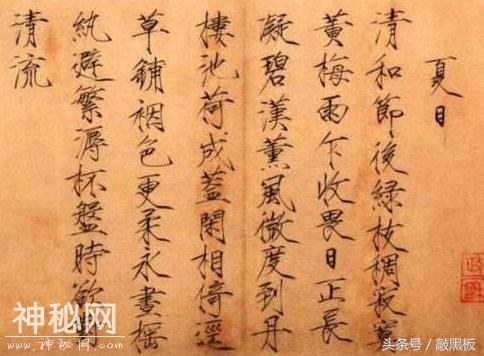 夏日
清和節後綠枝稠寂寞
黃梅雨乍收畏日正長
凝碧漢薰風微度到丹
樓池荷成蓋閑相倚逕
草鋪裀色更柔永晝搖
紈避繁溽杯盤時欲對
清流
政和
神秘网
www.神秘网.com
头条号 / 敲黑板